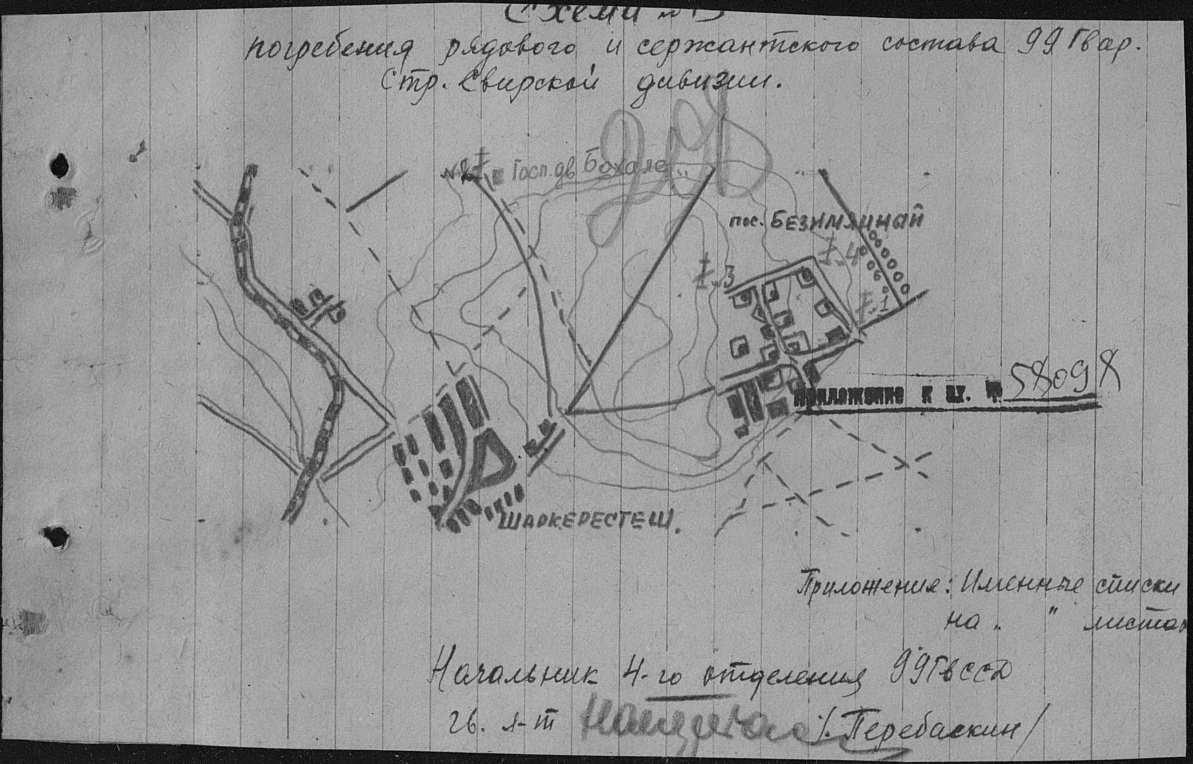 Схема №
погребения рядового и сержантского состава 99 Гвар.
Стр. Свирской дивизии.
Госп. дв. Бохале
пос. БЕЗИМЯННАЙ
3
4
1
Приложение к вх. № 58098
ШАРКЕРЕСТЕШ.
Приложения: Именные списки
на " " листах
Начальник 4-го отделения 99ГвССД
гв. л-т /Перебаскин/